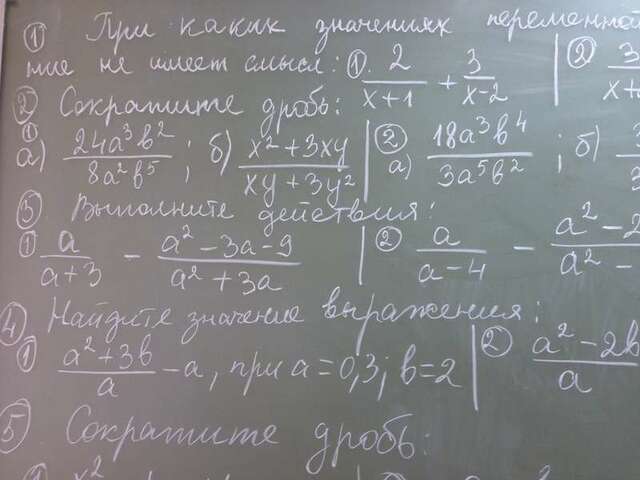 ① При каких значениях переменно
ние не имеет смысл: ① 2/(x+1) + 3/(x-2) | ② 3/(x+
② Сократите дробь:
① а) 24a³b²/8a²b⁵ ; б) (x²+3xy)/(xy+3y²) | ② а) 18a³b⁴/3a⁵b² ; б)
③ Выполните действия:
① a/(a+3) - (a²-3a-9)/(a²+3a) | ② a/(a-4) - (a²-2/(a²-
④ Найдите значение выражения:
① (a²+3b)/a - a, при a=0,3; b=2 | ② (a²-2b)/a
⑤ Сократите дробь: